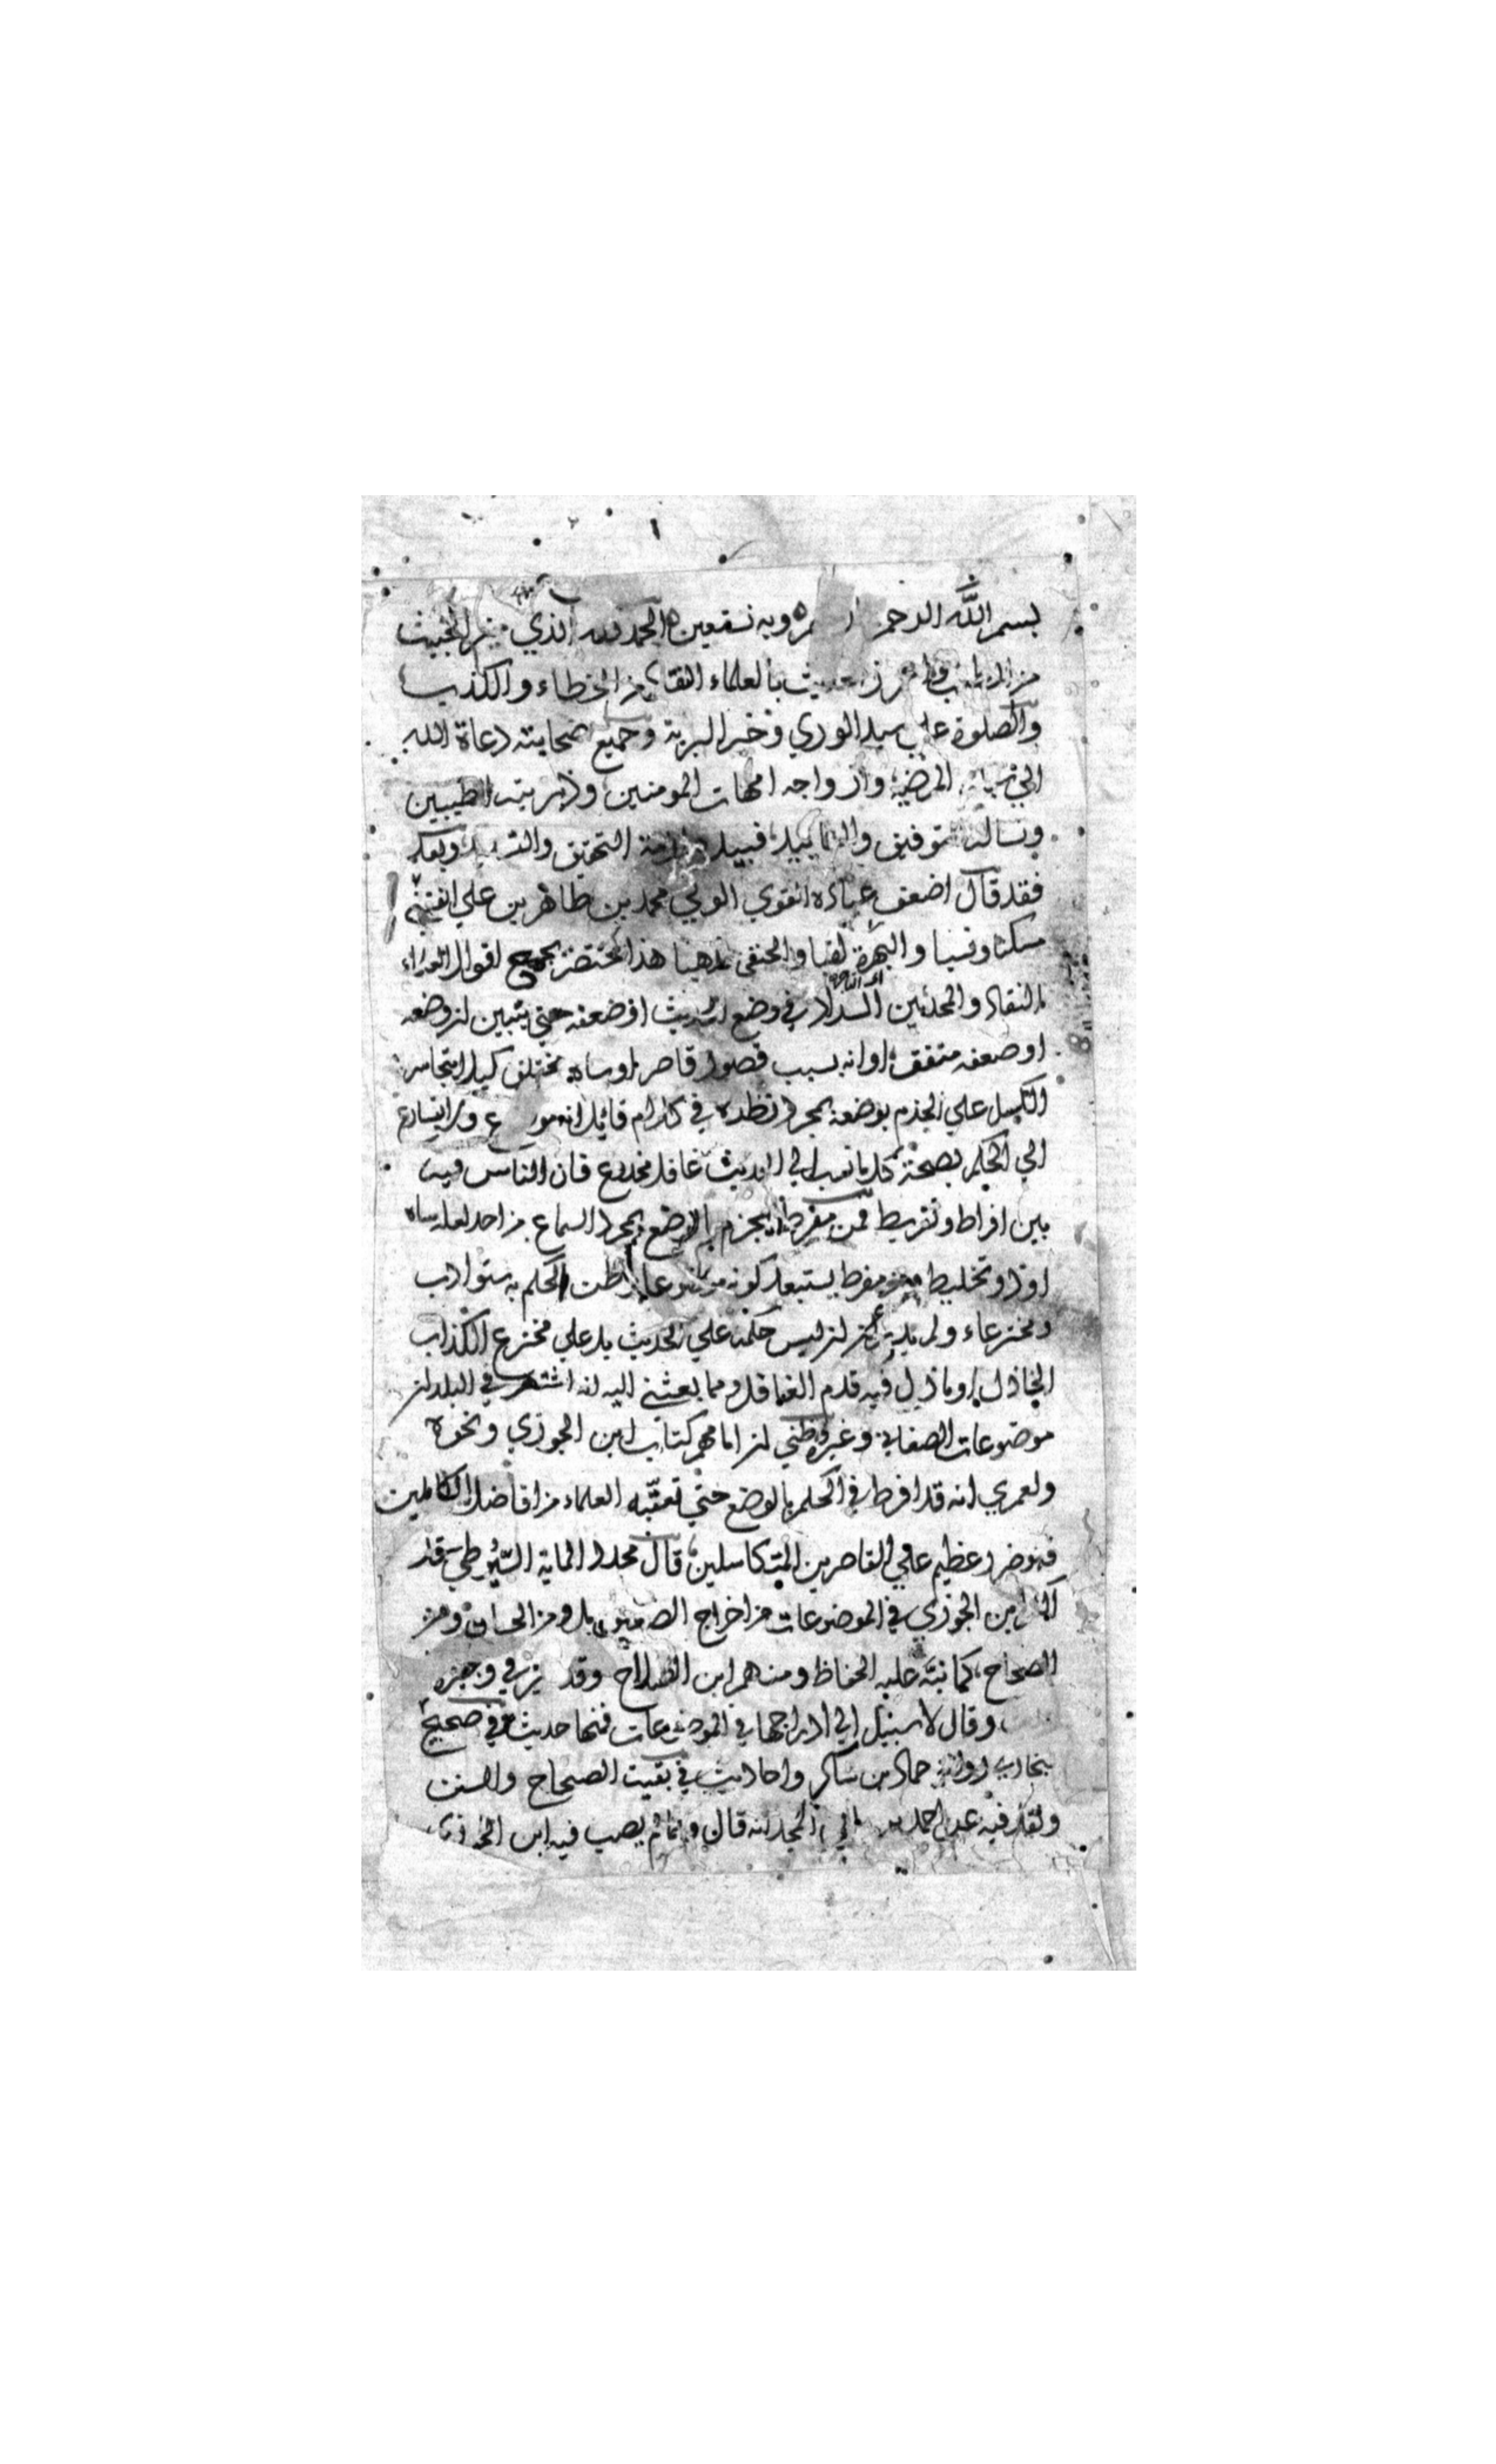 ١
بسم الله الرحمن وبه نستعين الحمد لله الذي ميز الخبيث
من الطيب و الحديث بالعلماء النقاد من الخطاء والكذب
والصلوة علي سيد الوري وخير البرية وجميع صحابته دعاة الله
الي المرضية وازواجه امهات المومنين وذريته الطيبين
ونساله التوفيق والتاييد التحقيق والتسديد وبعد
فقد قال اضعف عباد القوي الولي محمد بن طاهر بن علي الفتني
مسكنا ونسبا والبهرة لقبا والحنفي مذهبا هذا مختصر يجمع اقوال العلماء
النقاد والمحدثين السداد في وضع الحديث او ضعفه حتي يتبين ان وضعه
او ضعفه متفق او انه بسبب قصور قاصر او ساه مختلق كيلا يتجاسر
الكسل علي الجزم بوضعه بمجرد نظره في كلام قائل انه موضوع ولا يتسارع
الي الحكم بصحة كل ما نسب الي الحديث غافل مخدوع فان الناس فيه
بين افراط وتفريط فمن مفرط يجزم بالوضع بمجرد السماع من احد لعله ساه
او ذو تخليط ومن مفرط يستبعد كونه موضوعا وظن الحكم به سوء ادب
ومخترعا ولم يدر ان ليس حكمه علي الحديث بل علي مخترع الكذاب
الخاذل او ما زل فيه قدم الغافل ومما بعثني اليه انه اشتهر في البلدان
موضوعات الصغاني وغيره وظني ان امامهم كتاب ابن الجوزي ونحوه
ولعمري انه قد افرط في الحكم بالوضع حتي تعقبه العلماء من افاضل الكاملين
فهو ضرر عظيم علي القاصرين المتكاسلين قال مجدد الماية السيوطي قد
اكثر ابن الجوزي في الموضوعات من اخراج الضعيف بل ومن الحسان ومن
الصحاح كما نبه عليه الحفاظ ومنهم ابن الصلاح وقد ميز في وجيزه
وقال لا سبيل الي ادراجها في الموضوعات فمنها حديث في صحيح
بخاري رواية حماد بن شاكر واحاديث في بقية الصحاح والسنن
ونقل فيه عن احمد بن ابي المجد انه قال ومما لم يصب فيه ابن الجوزي